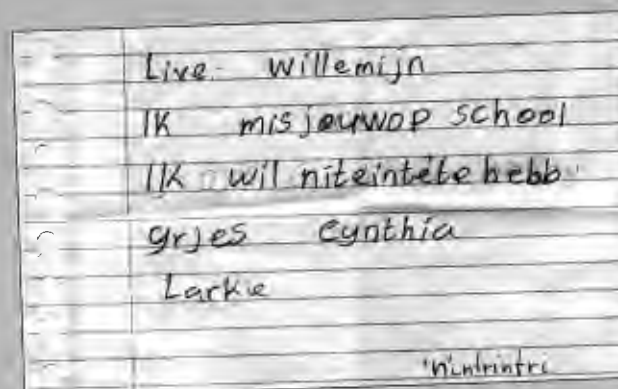 Live Willemijn
IK mis jouwop school
IK wil niteintete hebb
grjes Cynthia
Larkie